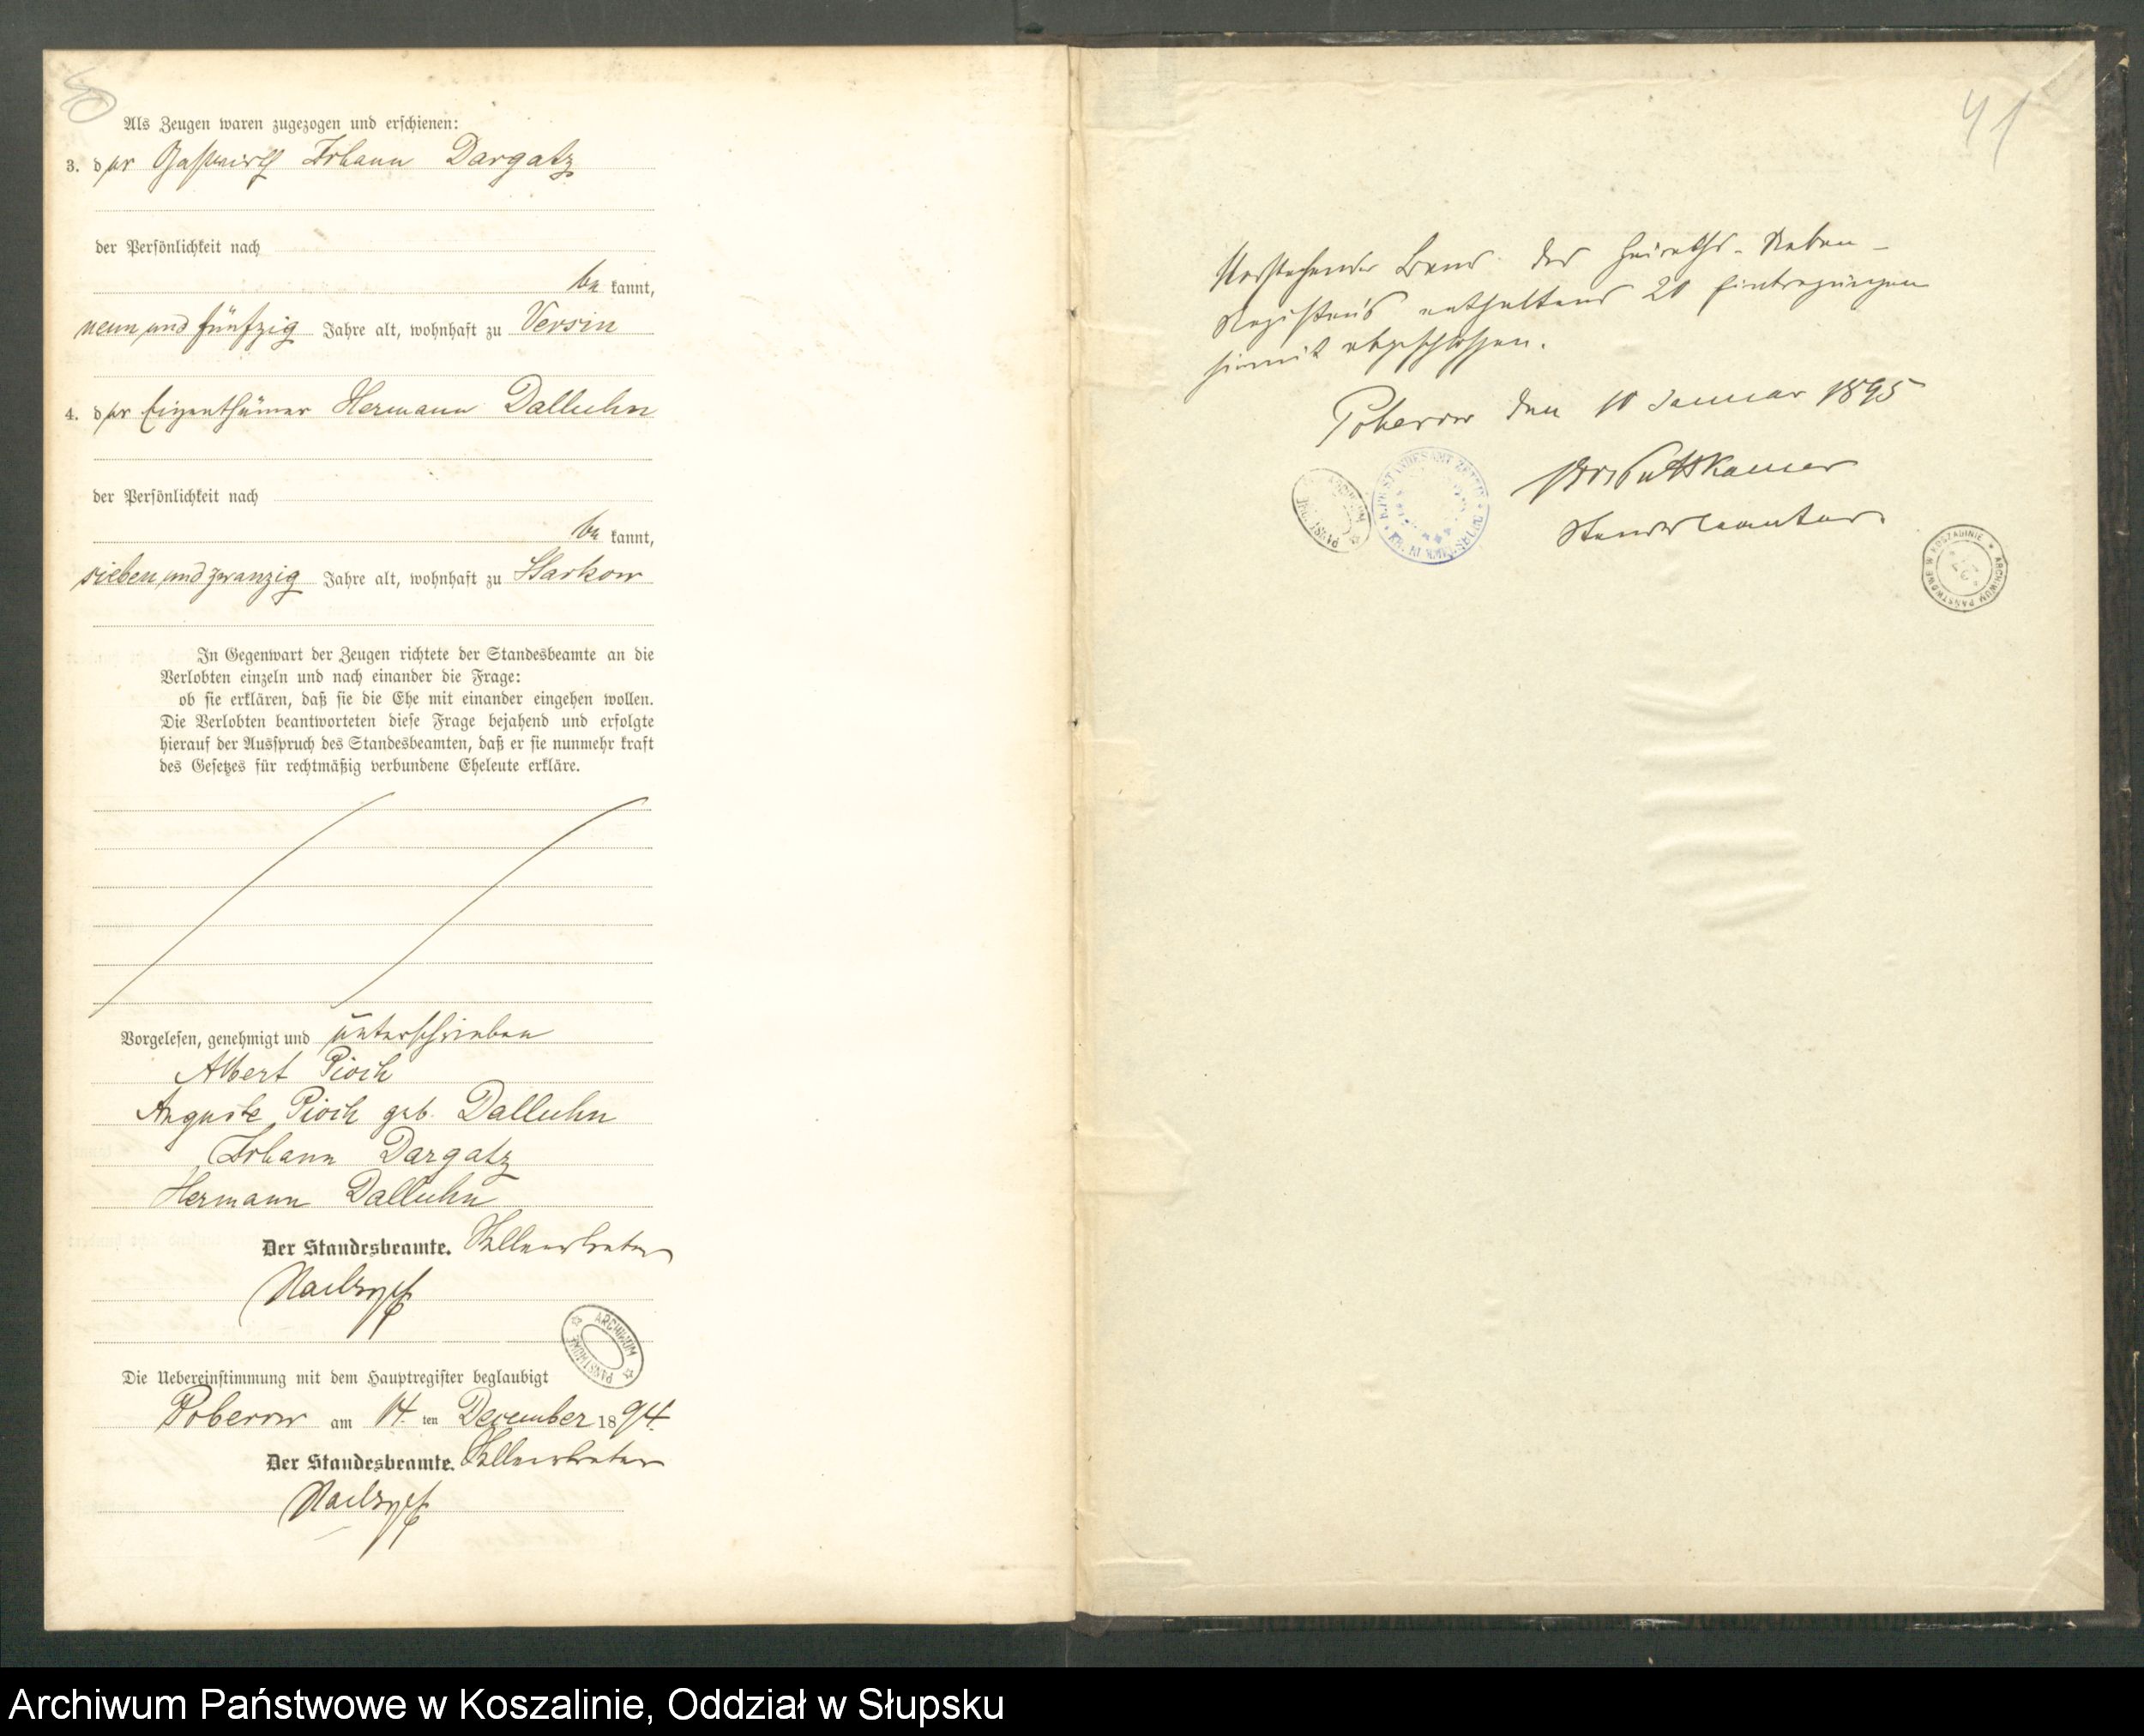 Als Zeugen waren zugezogen und erschienen:
3. der Gastwirth Johann Dargatz
der Persönlichkeit nach
be kannt,
neun und fünfzig Jahre alt, wohnhaft zu Versin
4. der Eigenthümer Hermann Dalluhn
der Persönlichkeit nach
be kannt,
sieben und zwanzig Jahre alt, wohnhaft zu Starkow
In Gegenwart der Zeugen richtete der Standesbeamte an die
Verlobten einzeln und nach einander die Frage:
ob sie erklären, daß sie die Ehe mit einander eingehen wollen.
Die Verlobten beantworteten diese Frage bejahend und erfolgte
hierauf der Ausspruch des Standesbeamten, daß er sie nunmehr kraft
des Gesetzes für rechtmäßig verbundene Eheleute erkläre.
Vorgelesen, genehmigt und unterschrieben
Albert Pioch
Auguste Pioch geb. Dalluhn
Johann Dargatz
Hermann Dalluhn
Der Standesbeamte. Stellvertreter
ARCHIWUM PAŃSTWOWE
Die Uebereinstimmung mit dem Hauptregister beglaubigt
Poberow am 14. ten December 1894.
Der Standesbeamte. Stellvertreter
41
Vorstehender Band des Heiraths-Neben-
Registers enthaltend 20 Eintragungen
hiermit abgeschlossen.
Poberow den 10 Januar 1895
von Puttkamer
Standesbeamter.
ARCHIWUM PAŃSTWOWE
ARCHIWUM PAŃSTWOWE W KOSZALINIE
Archiwum Państwowe w Koszalinie, Oddział w Słupsku